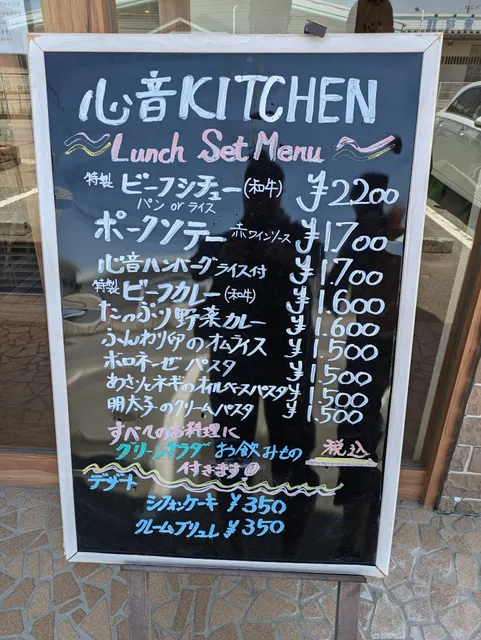 心音KITCHEN
Lunch Set Menu
特製 ビーフシチュー(和牛) ¥2.200
パン or ライス
ポークソテー 赤ワインソース ¥1.700
心音ハンバーグ ライス付 ¥1.700
特製 ビーフカレー(和牛) ¥1.600
たっぷり野菜カレー ¥1.600
ふんわり卵のオムライス ¥1.500
ボロネーゼ パスタ ¥1.500
あさりとネギのオイルベースパスタ ¥1.500
明太子のクリームパスタ ¥1.500
すべてのお料理に
グリーンサラダ お飲みもの 税込
付きます
デザート
シフォンケーキ ¥350
クレームブリュレ ¥350